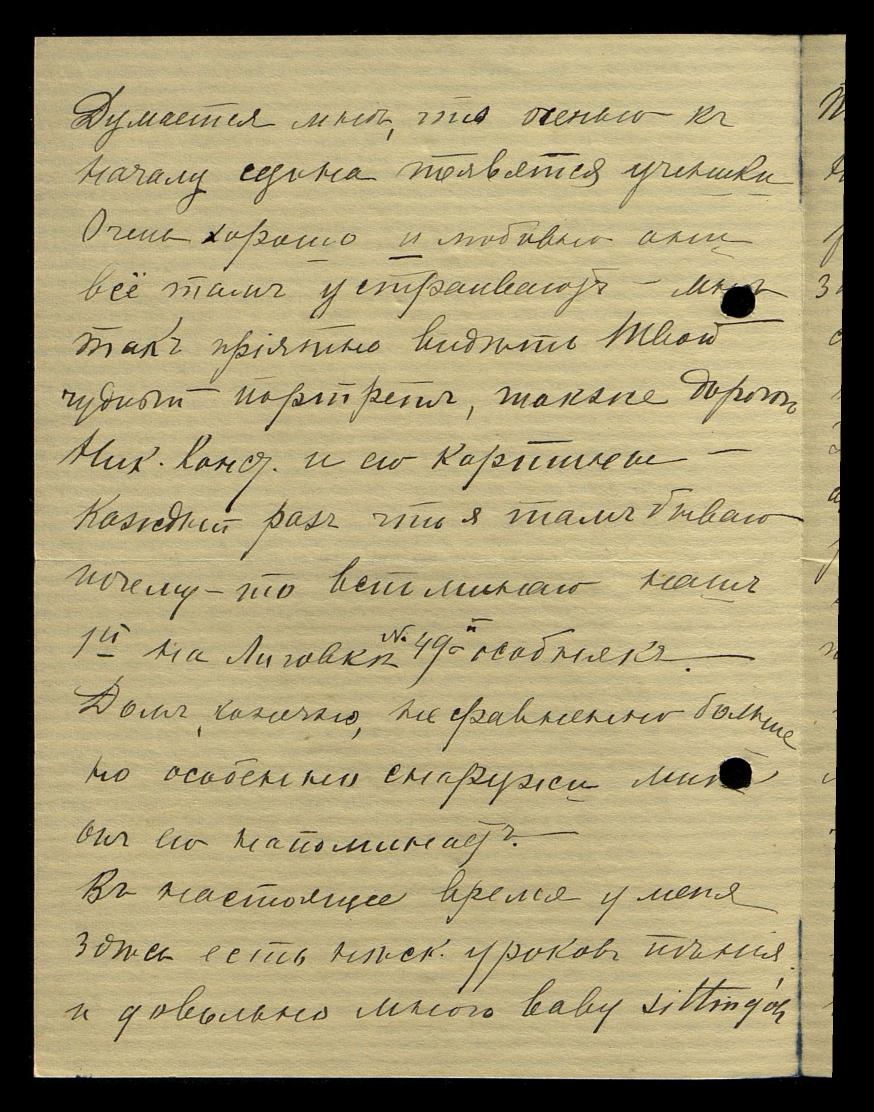 Думается мнѣ, что осенью къ
началу сезона появятся ученики
Очень хорошо и любовно они
всё тамъ устраиваютъ – мнѣ
такъ прiятно видѣть Твой
чудный портретъ, также дорогого
Ник. Конст. и его картины –
Каждый разъ что я тамъ бываю
почему-то вспоминаю нашъ
1й на Лиговкѣ № 49-й особнякъ.
Домъ, конечно, несравненно больше
но особенно снаружи мнѣ
онъ его напоминаетъ. –
Въ настоящее время у меня
здѣсь есть нѣск. уроковъ пѣнiя
и довольно много baby sitting'овъ